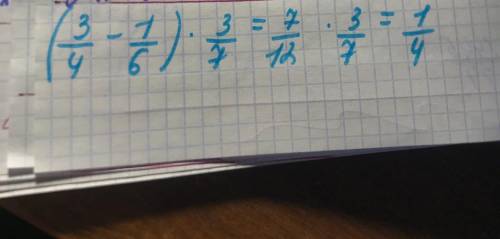 (3/4 - 1/6) · 3/7 = 7/12 · 3/7 = 1/4